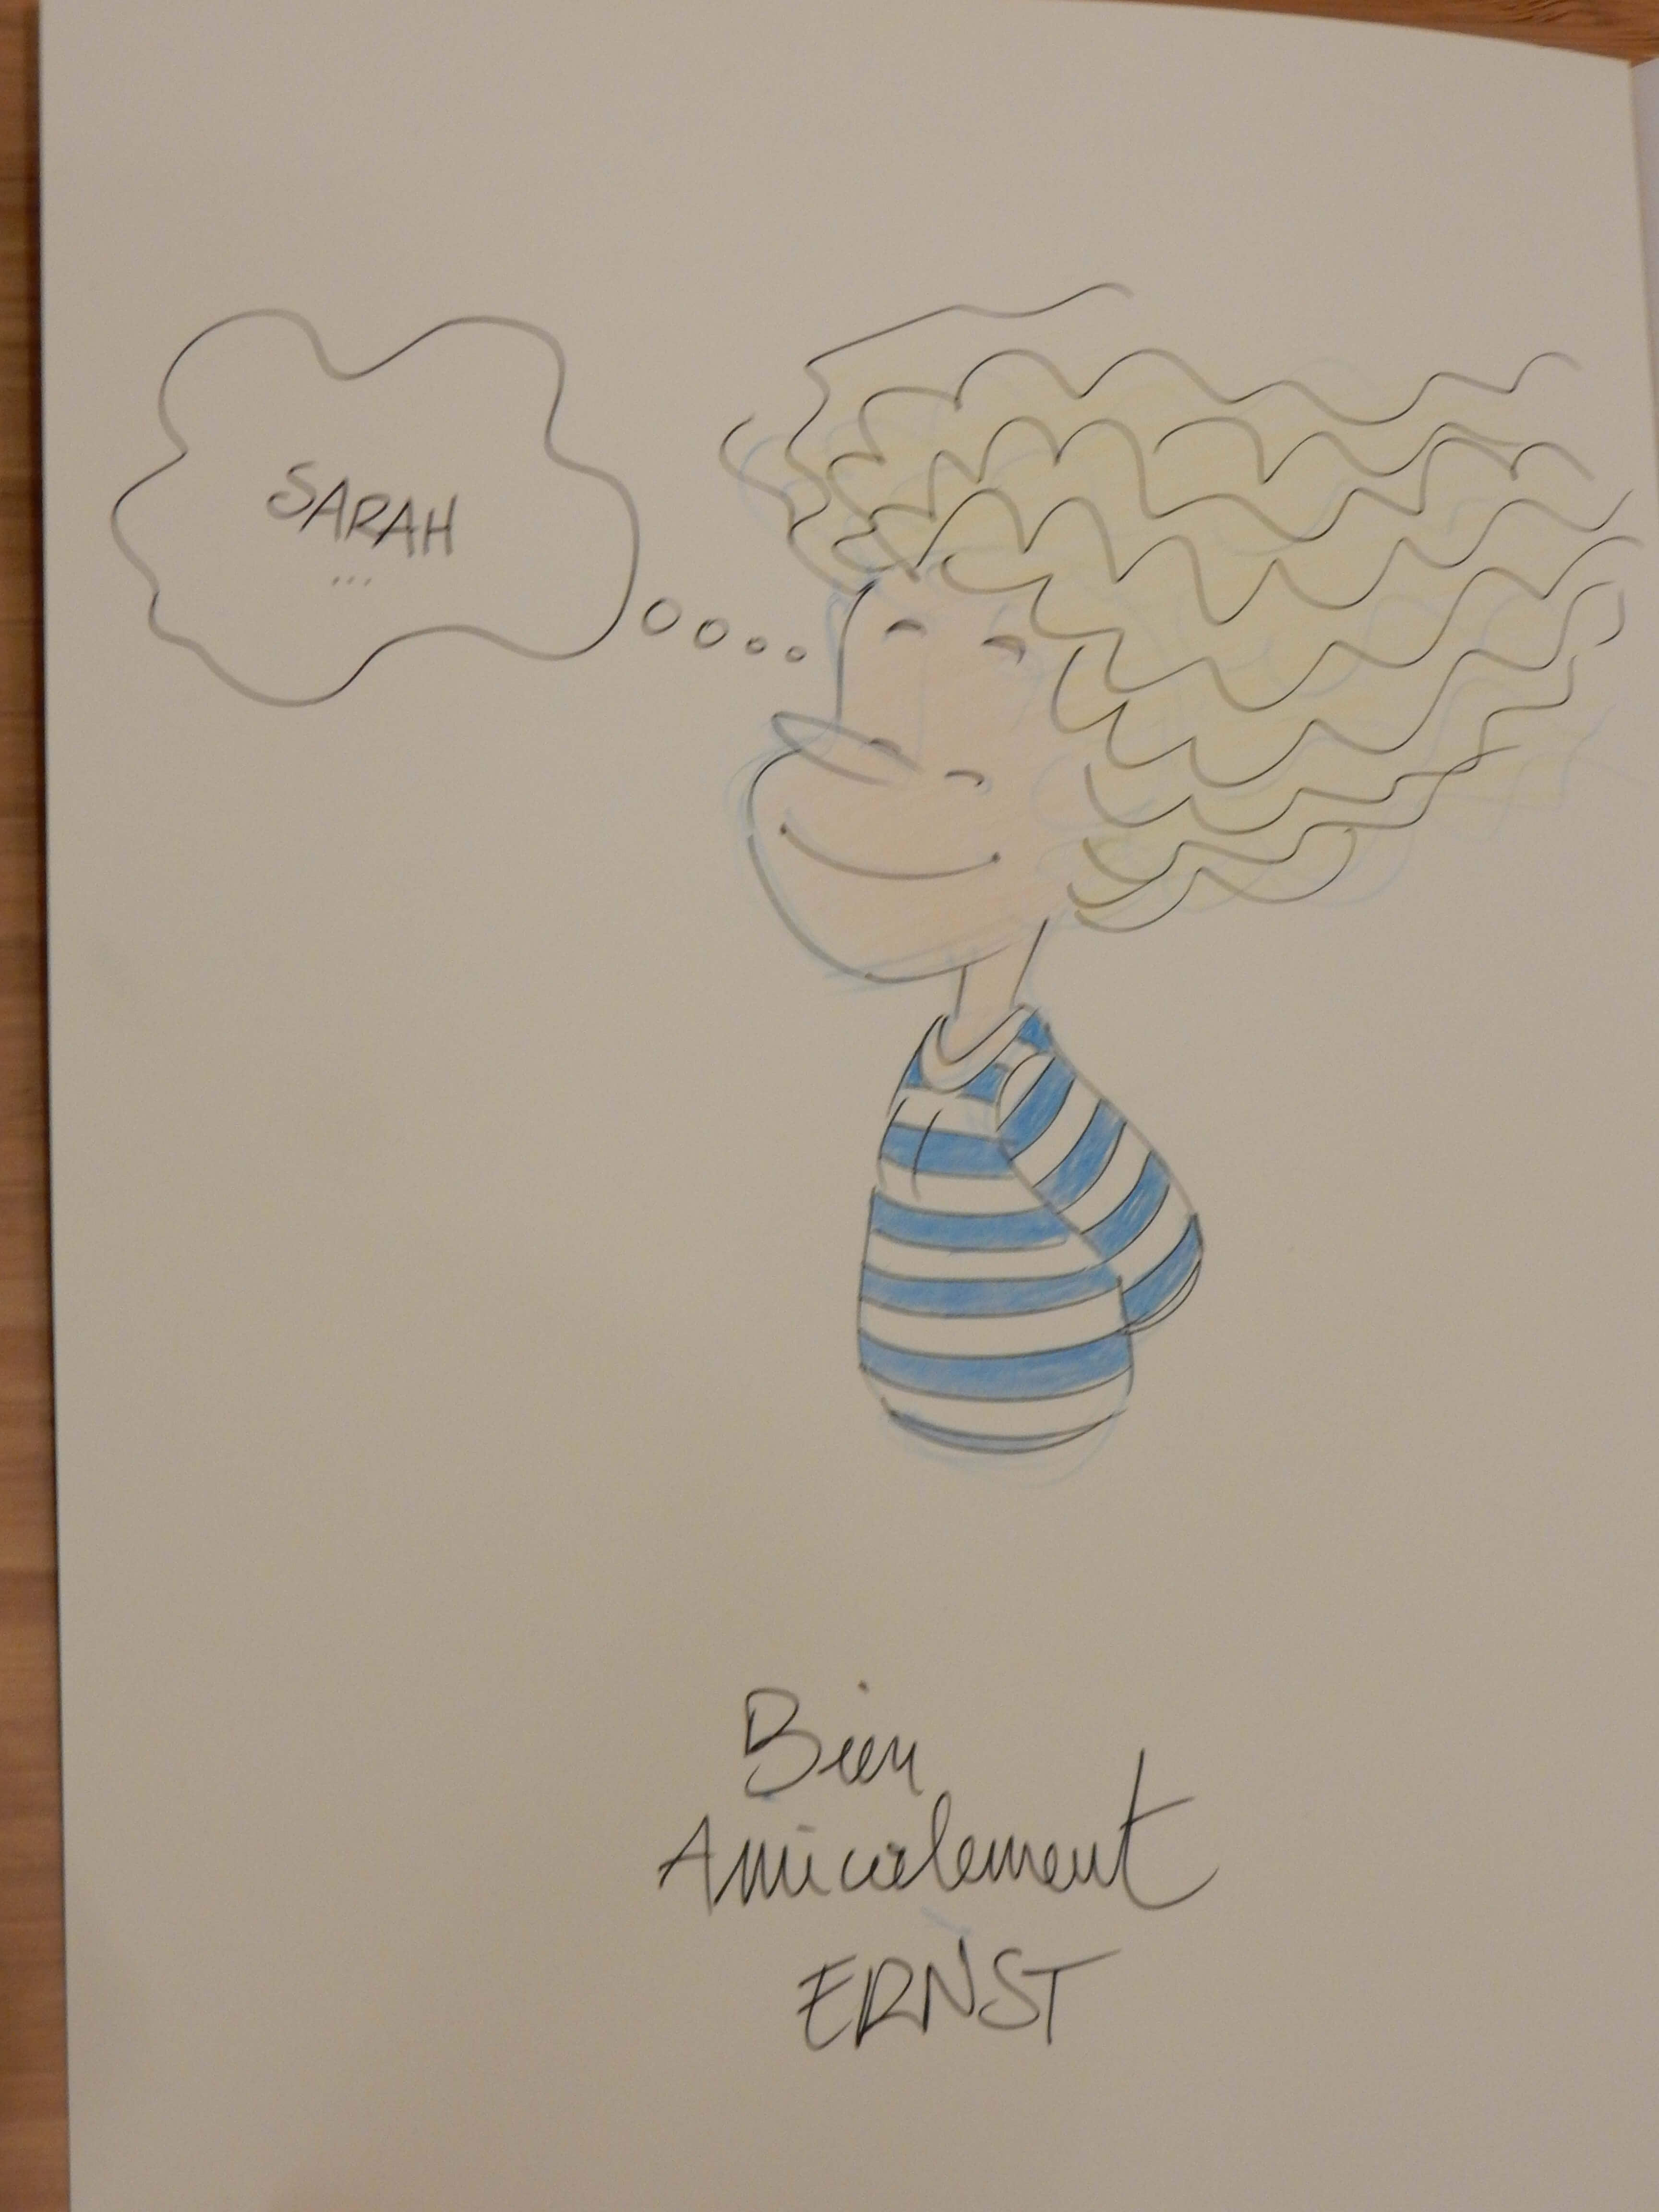 SARAH
...
Bien
Amicalement
ERNST